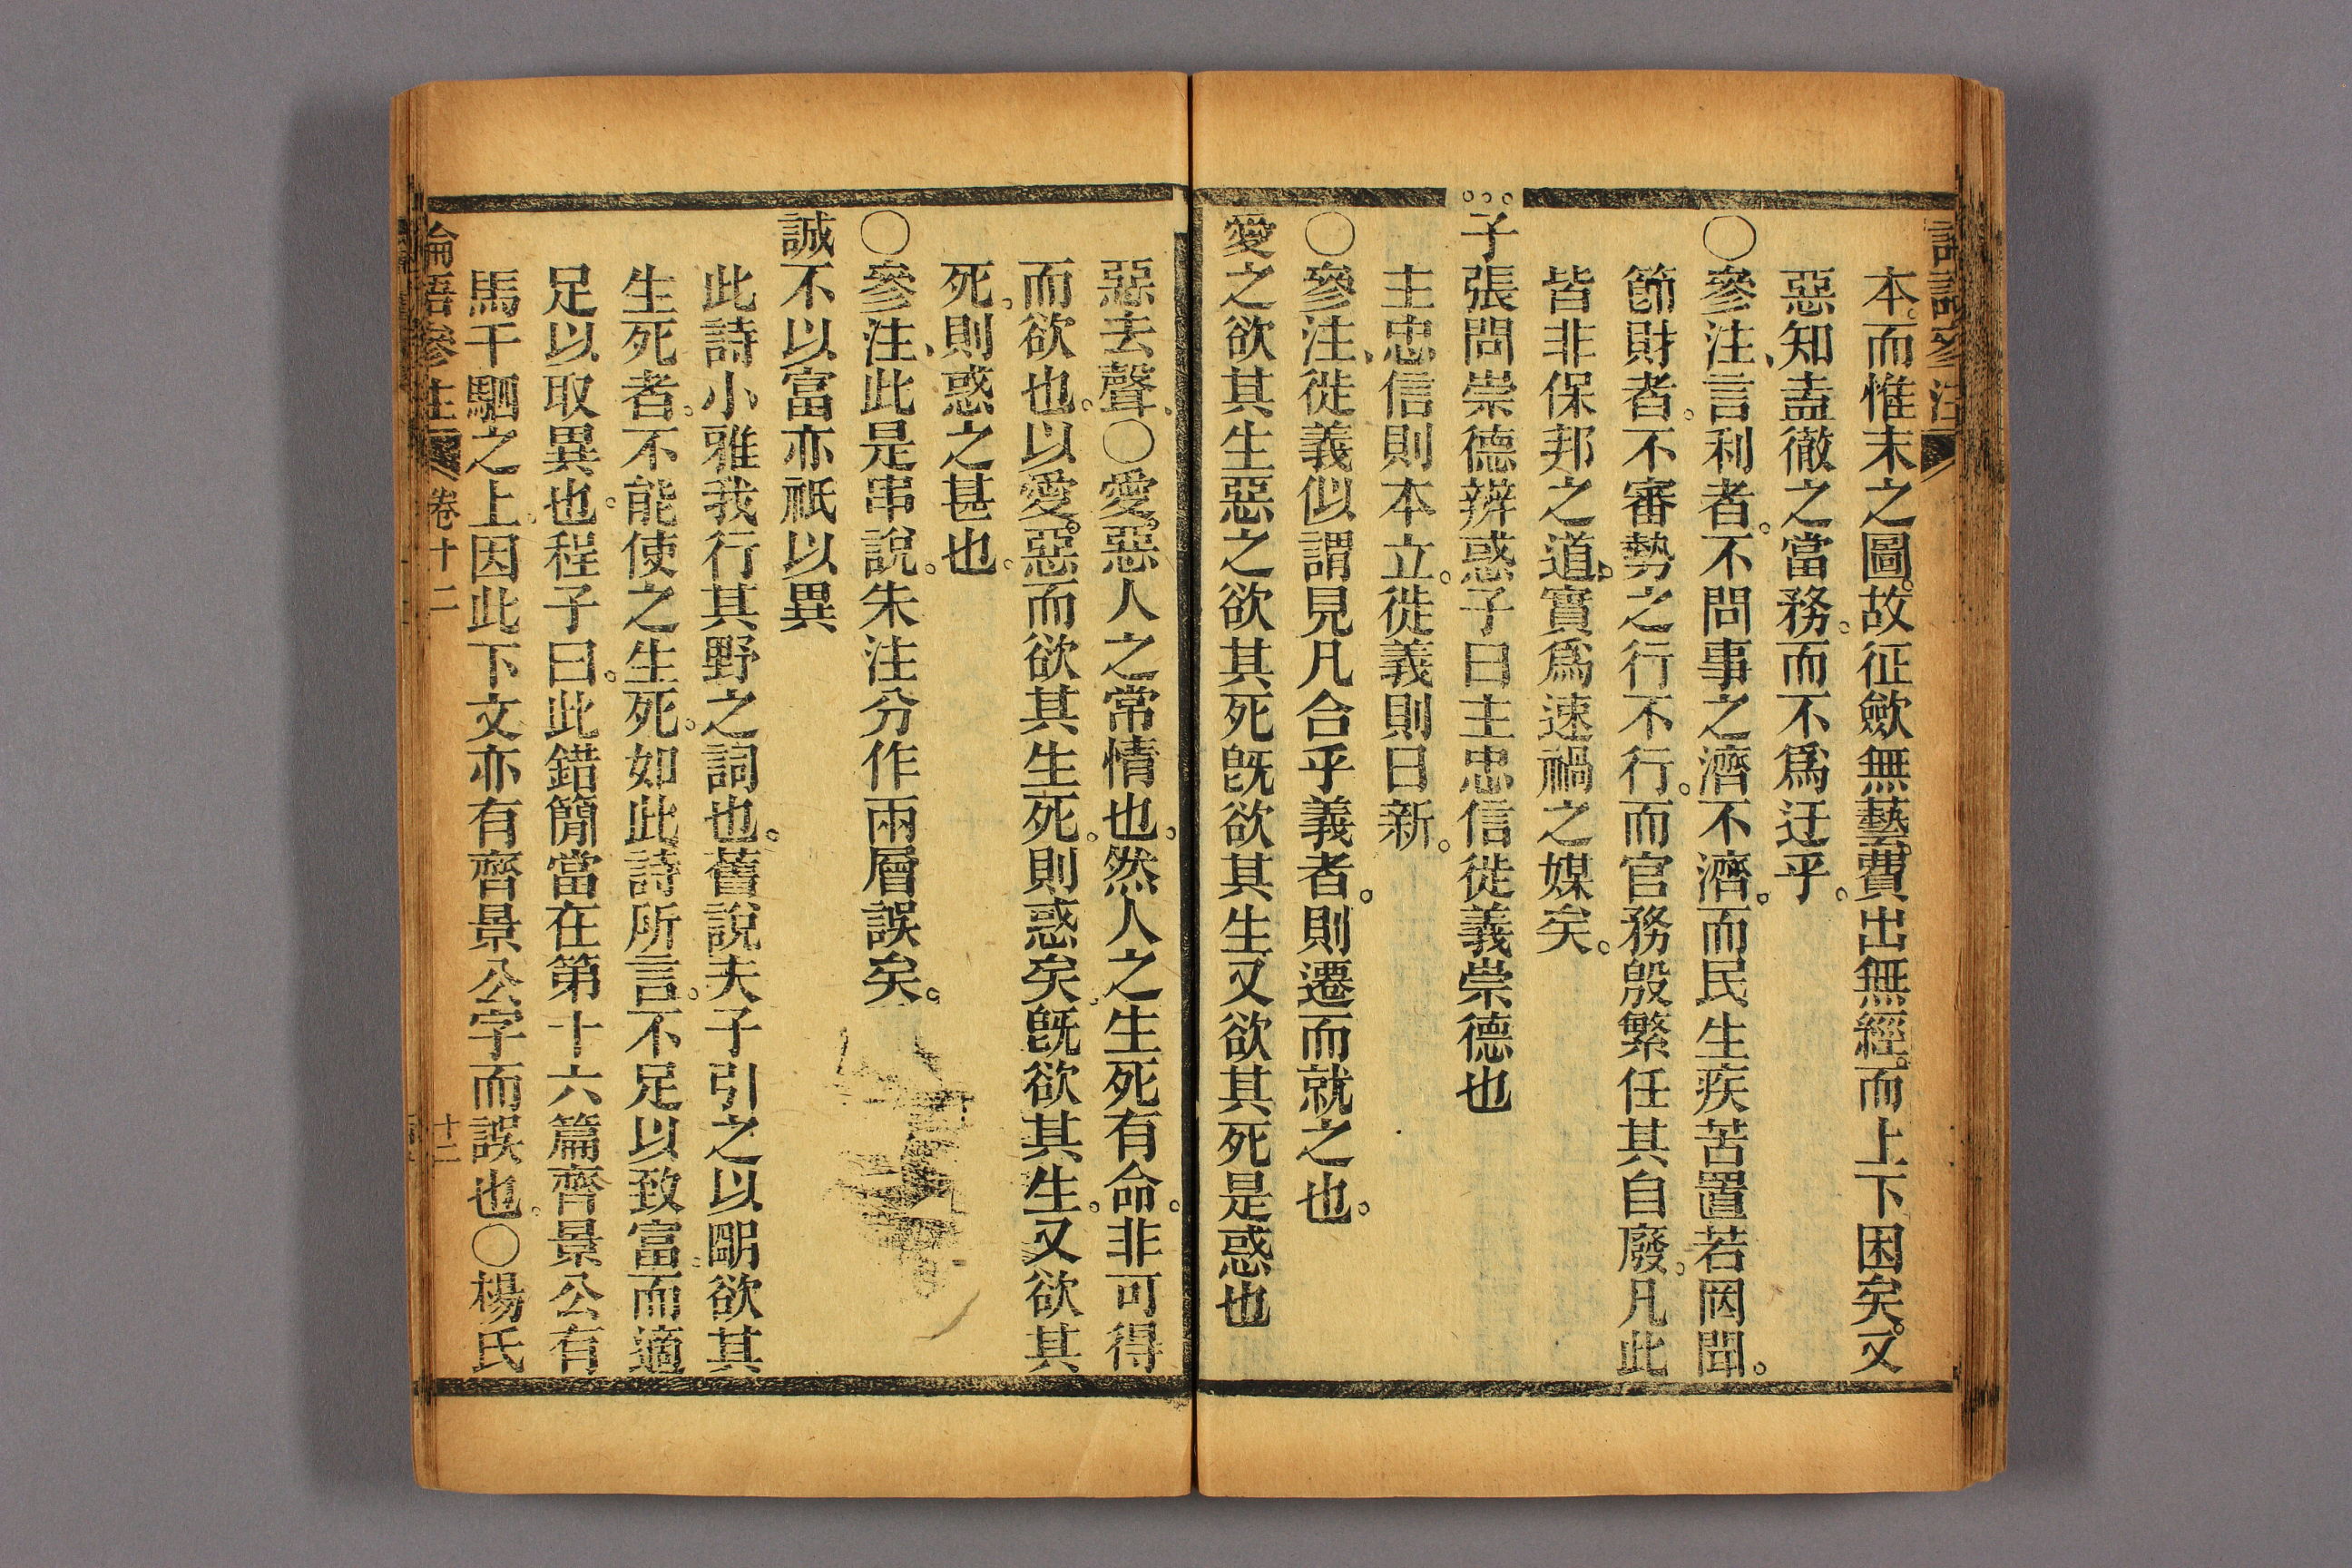 論語參注
本。而惟末之圖。故征斂無藝。費出無經。而上下困矣。又
惡知盍徹之當務。而不爲迂乎。
○參注、言利者。不問事之濟不濟。而民生疾苦置若罔聞。
節財者。不審勢之行不行。而官務殷繁任其自廢。凡此
皆非保邦之道。實爲速禍之媒矣。
子張問崇德辨惑子曰主忠信徙義崇德也
主忠信則本立。徙義則日新。
○參注、徙義似謂見凡合乎義者。則遷而就之也。
愛之欲其生惡之欲其死旣欲其生又欲其死是惑也
惡去聲。○愛。惡人之常情也。然人之生死有命。非可得
而欲也。以愛。惡而欲其生死。則惑矣。旣欲其生。又欲其
死。則惑之甚也。
○參注、此是串說。朱注分作兩層誤矣。
誠不以富亦祇以異
此詩小雅我行其野之詞也。舊說夫子引之以明欲其
生死者。不能使之生死。如此詩所言。不足以致富。而適
足以取異也。程子曰。此錯簡當在第十六篇齊景公有
馬千駟之上。因此下文亦有齊景公字而誤也。○楊氏
論語參注 卷十二 十二